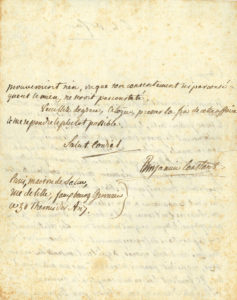 prouveroient rien, vu que son consentement ni par conséquent
quent le mien, ne seroit pas constaté.
Veuillez de grace, Citoyen, presser la fin de cette affaire
et me repondre le plutot possible.
Salut cordial
Benjamin Constant
Paris, maison de Salm,
rue de Lille, faubourg Germain
ce 30 Thermidor An 7.